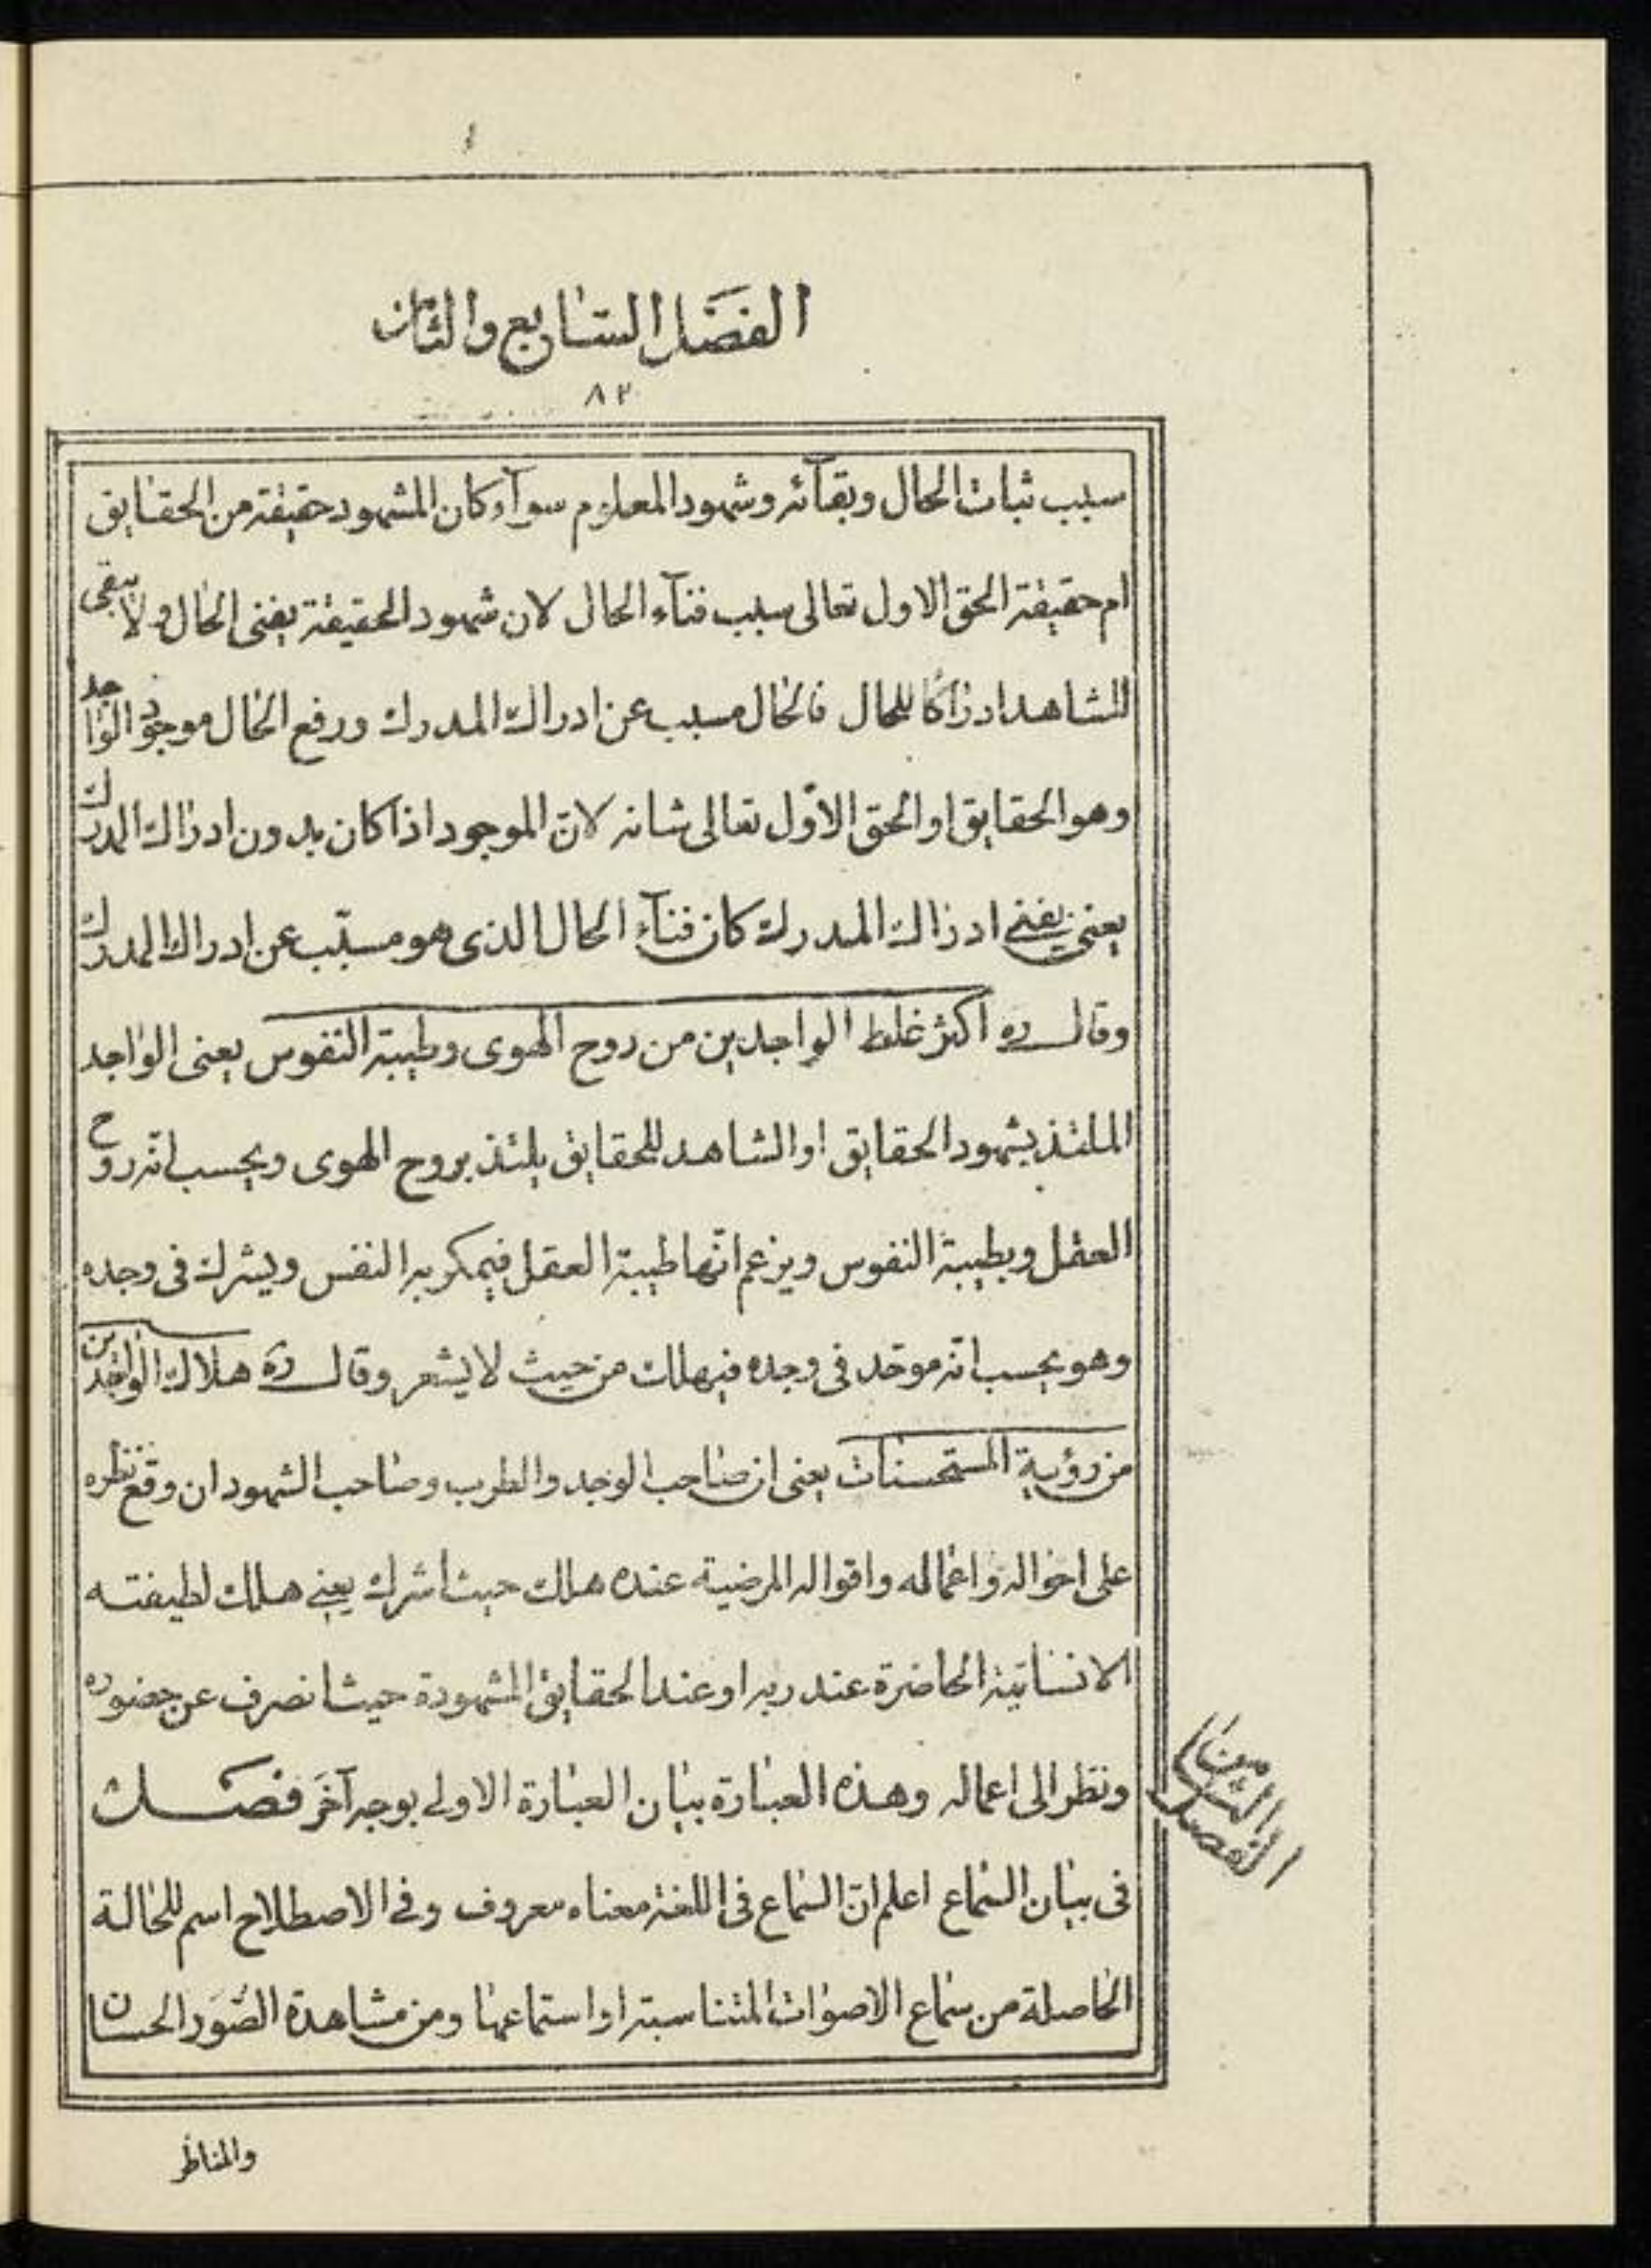 الفصل السابع والثامن
٨٢
سبب ثبات الحال وبقآئه وشهود المعلوم سوآء كان المشهود حقيقة من الحقايق
ام حقيقة الحق الاول تعالى سبب فنآء الحال لان شهود الحقيقة يفنى الحال ولا يبقى
للشاهد ادراكا للحال فالحال مسبب عن ادراك المدرك ورفع الحال موجود الواجد
وهو الحقايق او الحق الاوّل تعالى شانه لانّ الموجود اذا كان بدون ادراك المدرك
يعنى يفنى ادراك المدرك كان فنآء الحال الذى هو مسبّب عن ادراك المدرك
وقال ره اكثر غلط الواجدين من روح الهوى وطيبة النفوس يعنى الواجد
الملتذ بشهود الحقايق او الشاهد للحقايق يلتذ بروح الهوى ويحسب انّه روح
العقل وبطيبة النفوس ويزعم انّها طيبة العقل فيمكر به النفس ويشرك فى وجده
وهو يحسب انّه موحّد فى وجده فيهلك من حيث لا يشعر وقال ره هلاك الواجدين
من رؤية المستحسنات يعنى ان صاحب الوجد والطرب وصاحب الشهود ان وقع نظره
على احواله واعماله واقواله المرضية عنده هلك حيث اشرك يعنى هلك لطيفته
الانسانيّة الحاضرة عند ربه او عند الحقايق المشهودة حيث انصرف عن حضوره
ونظر الى اعماله وهذه العبارة بيان العبارة الاولى بوجه آخَر فصل
فى بيان السّماع اعلم انّ السّماع فى اللغة معناه معروف وفى الاصطلاح اسم للحالة
الحاصلة من سماع الاصوات المتناسبة او استماعها ومن مشاهدة الصّوَر الحسان
الفصل الثامن
والمناظر